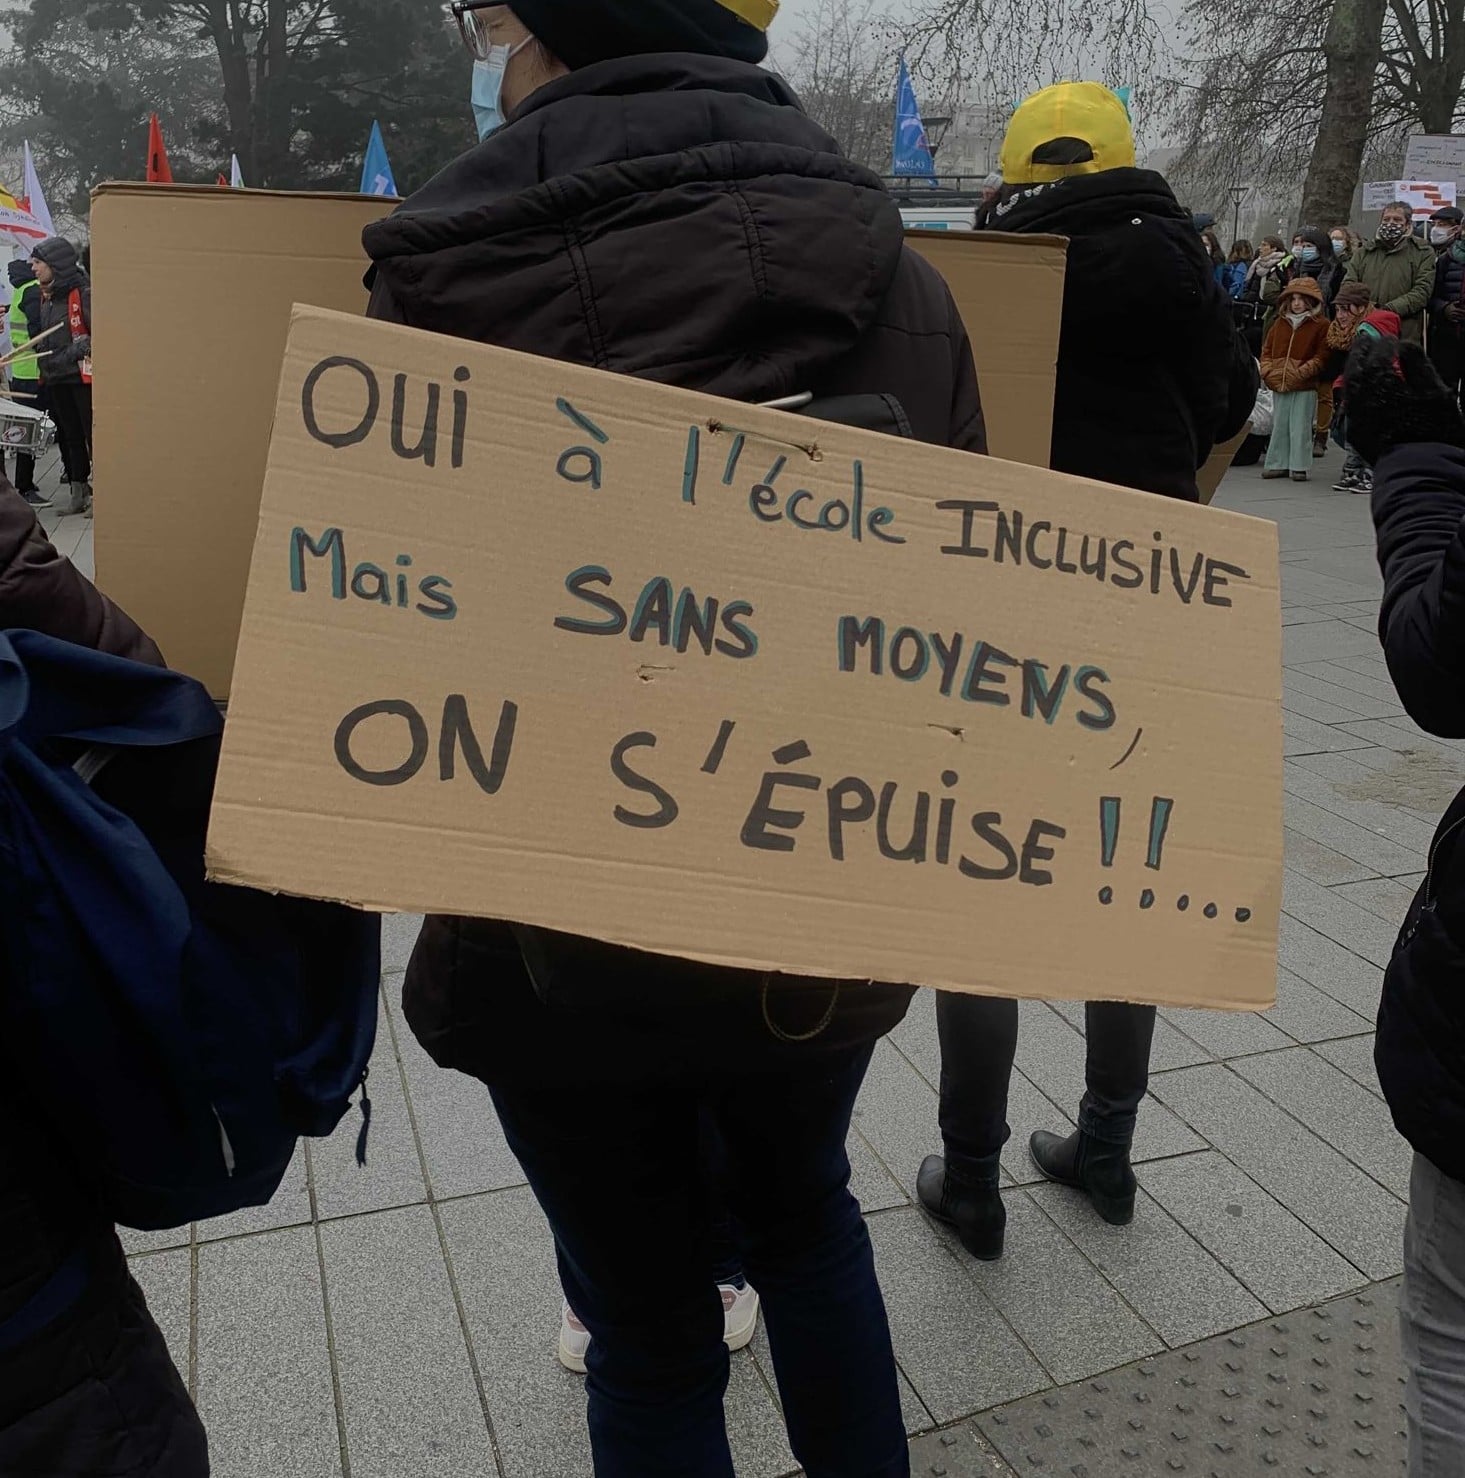 OUi à l'école INCLUSiVE
Mais SANS MOYENS,
ON S'ÉPUiSE !!...